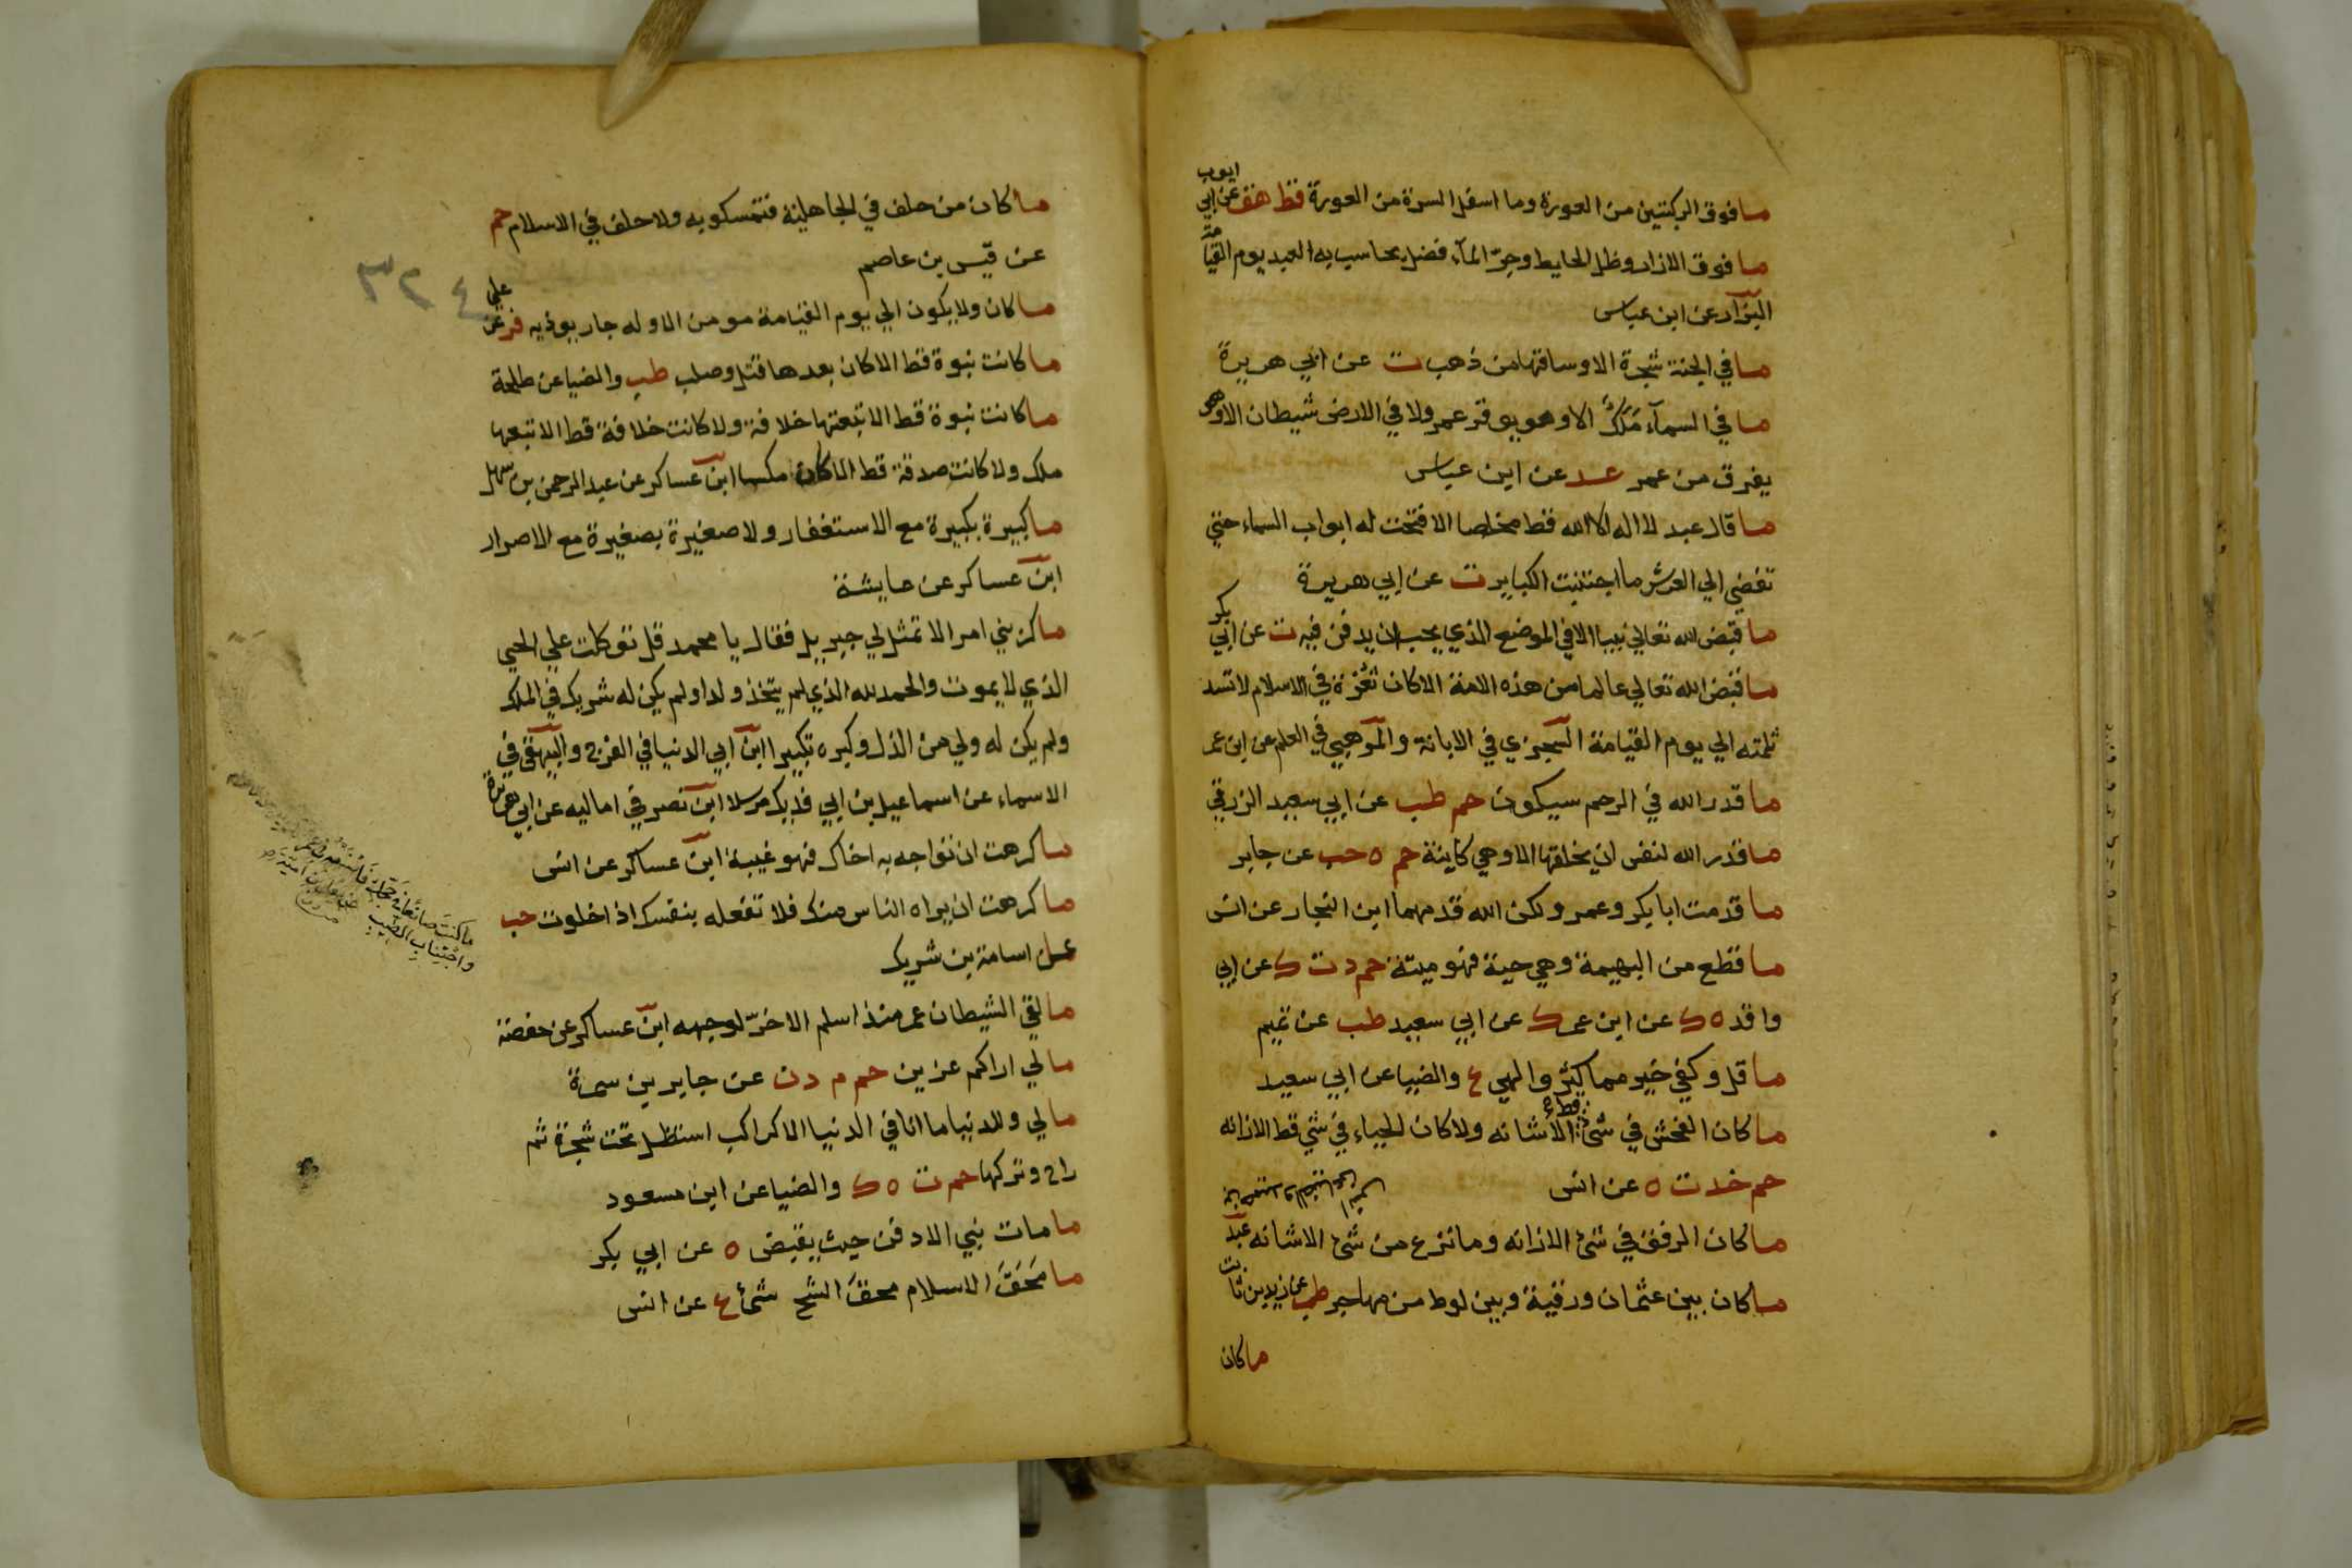 ما فوق الركبتين من العورة وما اسفل السرة من العورة قط هق عن ابي ايوب
ما فوق الازار وظل الحايط وجر المآء فضل يحاسب به العبد يوم القيامة
البزار عن ابن عباس
ما في الجنة شجرة الا وساقها من ذهب ت عن ابي هريرة
ما في السمآء مَلَكٌ الا وهو يوقر عمر ولا في الارض شيطان الا وهو
يفرق من عمر عد عن ابن عباس
ما قال عبد لا اله الا الله قط مخلصا الا فتحت له ابواب السماء حتي
تفضي الي العرش ما اجتنبت الكباير ت عن ابي هريرة
ما قبض الله تعالي نبيا الا في الموضع الذي يحب ان يدفن فيه ت عن ابي بكر
ما قبض الله تعالي عالما من هذه الامة الا كان ثغرة في الاسلام لا تسد
ثلمته الي يوم القيامة السجزي في الابانة والموهبي في العلم عن ابن عمر
ما قدر الله في الرحم سيكون حم طب عن ابي سعيد الزرقي
ما قدر الله لنفس ان يخلقها الا وهي كاينة حم ه حب عن جابر
ما قدمت ابا بكر وعمر ولكن الله قدمهما ابن النجار عن انس
ما قطع من البهيمة وهي حية فهو ميتة حم د ت ك عن ابي
واقد ه ك عن ابن عمر ك عن ابي سعيد طب عن تميم
ما قل وكفي خير مما كثر والهي ع والضيا عن ابي سعيد
ما كان الفحش في شئ قط الا شانه ولا كان الحياء في شئ قط الا زانه
حم خد ت ه عن انس
ما كان الرفق في شئ الا زانه وما نزع من شئ الا شانه عبد
ما كان بين عثمان ورقية وبين لوط من مهاجر طب عن زيد بن ثابت
ما كان
ما كان من حلف في الجاهلية فتمسكو به ولا حلف في الاسلام حم
عن قيس بن عاصم
٣٢٤
ما كان ولا يكون الي يوم القيامة مومن الا وله جار يوذيه فر عن علي
ما كانت نبوة قط الا كان بعدها قتل وصلب طب والضيا عن طلحة
ما كانت نبوة قط الا تبعتها خلافة ولا كانت خلافة قط الا تبعها
ملك ولا كانت صدقة قط الا كان مكسا ابن عساكر عن عبد الرحمن بن سهل
ما كبيرة بكبيرة مع الاستغفار ولا صغيرة بصغيرة مع الاصرار
ابن عساكر عن عايشة
ما كربني امر الا تمثل لي جبريل فقال يا محمد قل توكلت علي الحي
الذي لا يموت والحمد لله الذي لم يتخذ ولدا ولم يكن له شريك في الملك
ولم يكن له ولي من الذل وكبره تكبيرا ابن ابي الدنيا في الفرج والبيهقي في
الاسماء عن اسماعيل بن ابي فديك مرسلا ابن نصر في اماليه عن ابي هريرة
ما كرهت ان تواجه به اخاك فهو غيبة ابن عساكر عن انس
ما كرهت ان يراه الناس منك فلا تفعله بنفسك اذا خلوت حب
عن اسامة بن شريك
ما كنت صانعا في حجك فاصنعه في
واجتناب الطيب
ما لقي الشيطان عمر منذ اسلم الا خرّ لوجهه ابن عساكر عن حفصة
ما لي اراكم عزين حم م د ن عن جابر بن سمرة
ما لي وللدنيا ما انا في الدنيا الا كراكب استظل تحت شجرة ثم
راح وتركها حم ت ه ك والضيا عن ابن مسعود
ما مات نبي الا دفن حيث يقبض ه عن ابي بكر
ما مَحَقَ الاسلام محقَ الشح شئ ع عن انس